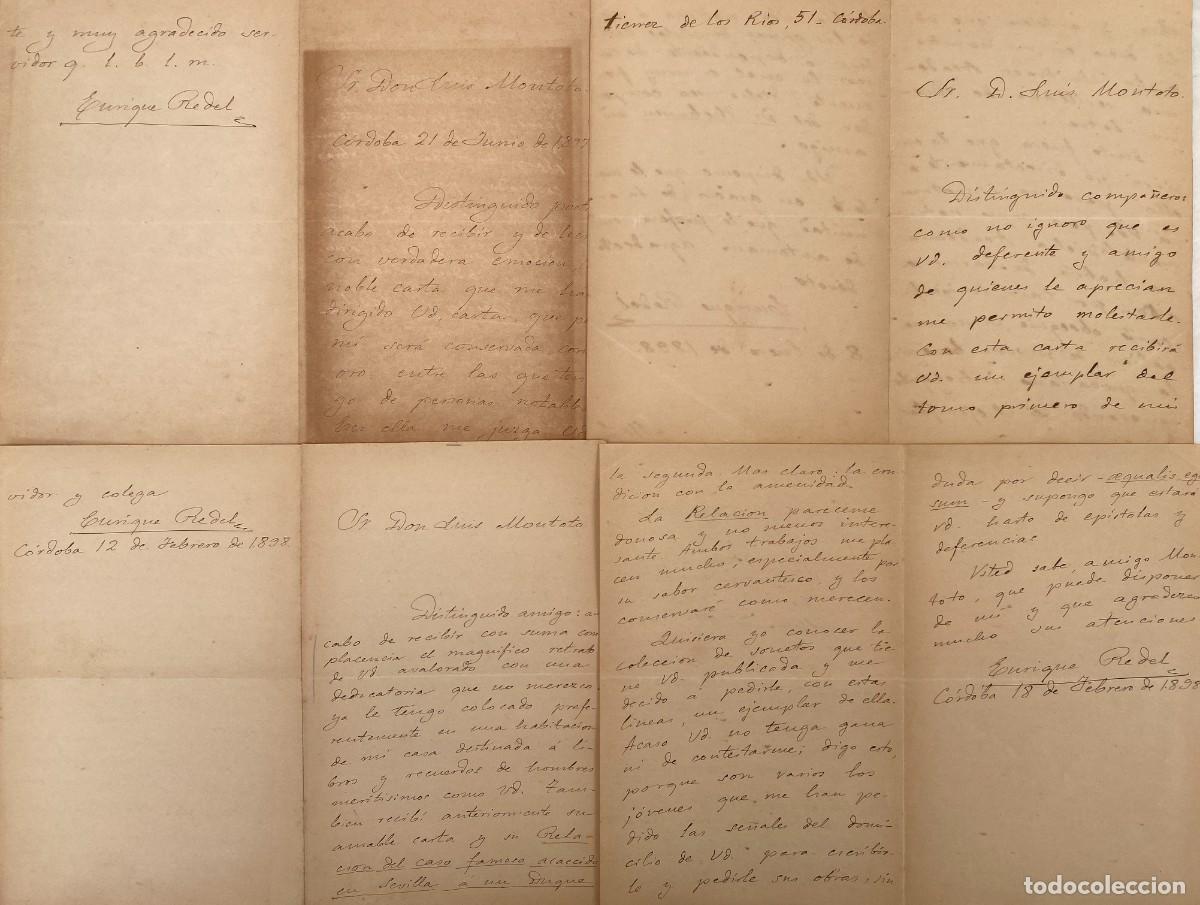 te y muy agradecido ser-
vidor q. l. b. l. m.
Enrique Redel
Sr. Don Luis Montoto.
Córdoba 21 de Junio de 1897
Distinguido
acabo de recibir y de leer
con verdadera emoción,
noble carta que me ha
dirigido Vd, carta que
mí será conservada con
oro entre las que ten-
go de personas notable
En ella me juzga
tierrez de los Rios, 51 - Córdoba.
Sr. D. Luis Montoto.
Distinguido compañero:
como no ignoro que es
Vd. deferente y amigo
de quienes le aprecian
me permito molestarle.
Con esta carta recibirá
Vd. un ejemplar del
tomo primero de mis
vidor y colega
Enrique Redel
Córdoba 12 de Febrero de 1898.
Sr Don Luis Montoto
Distinguido amigo: a-
cabo de recibir con suma com
placencia el magnífico retrato
de Vd avalorado con una
dedicatoria que no merezco.
ya le tengo colocado prefe-
rentemente en una habitacion
de mi casa destinada á li-
bros y recuerdos de hombres
meritísimos como Vd. Tam-
bien recibí anteriormente su
amable carta y su Rela-
cion del caso famoso acaecido
en Sevilla á un Duque
la segunda. Mas claro: la con
dicion con la amenidad.
La Relacion pareceme
donosa y no menos intere-
sante. Ambos trabajos me pla
cen mucho, especialmente por
su sabor cervantesco, y los
conservaré como merecen.
Quisiera yo conocer la
coleccion de sonetos que tie
ne Vd. publicada y me
decido á pedirle, con estas
lineas, un ejemplar de ella.
Acaso Vd. no tenga gana
ni de contestarme; digo esto,
porque son varios los
jóvenes que me han pe-
dido las señales del domi-
cilio de Vd. para escribir-
le y pedirle sus obras, sin
duda por decir - æqualis ego
sum - y supongo que estará
Vd. harto de epístolas y
deferencias
Usted sabe, amigo Mon-
toto, que puede disponer
de mí y que agradezco
mucho sus atenciones
Enrique Redel
Córdoba 18 de Febrero de 1898
todocoleccion